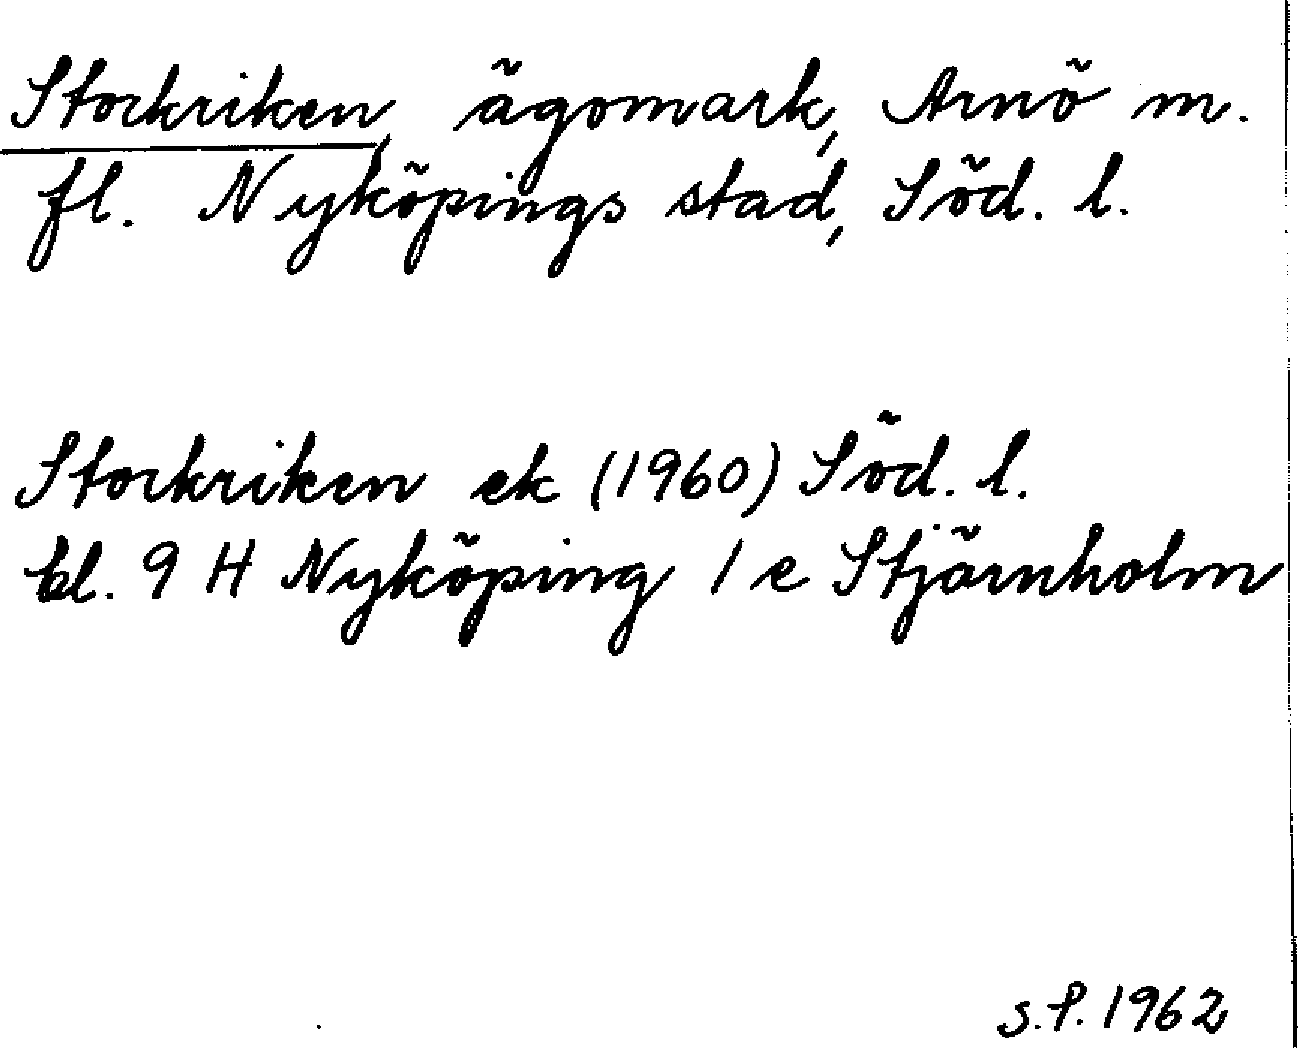 Stockriken, ägomark, Arnö m.
fl. Nyköpings stad, Söd. l.
Stockriken ek (1960) Söd. l.
bl. 9 H Nyköping 1 e Stjärnholm
S.P. 1962